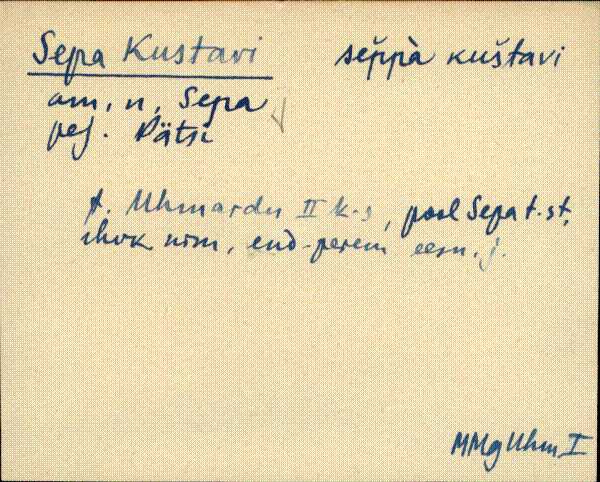 Sepa Kustavi seп̌п̀à kuštavi
am. n. Sepa
pej. Pätsi
t. Uhmardu II k-s, pool Sepa t. st.
end. perem eesn. j.
MMg Uhm I